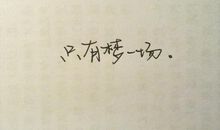 只有梦一场。